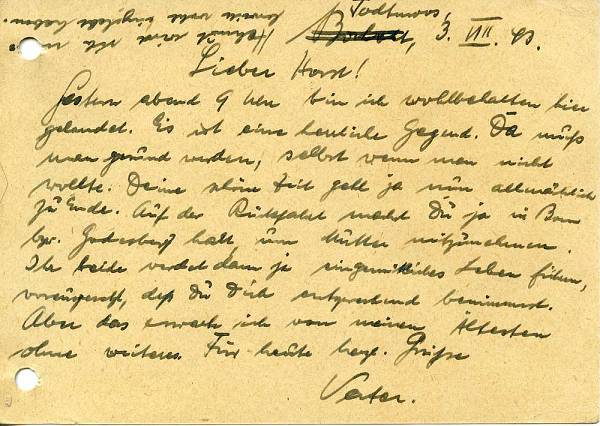 Todtmoos,
3. VIII. 43.
Lieber Horst!
Gestern abend 9 Uhr bin ich wohlbehalten hier
gelandet. Es ist eine herrliche Gegend. Da muß
man gesund werden, selbst wenn man nicht
wollte. Deine schöne Zeit geht ja nun allmählich
zu Ende. Auf der Rückfahrt machst Du ja in Bonn
bzw. Godesberg halt, um Mutter mitzunehmen.
Ihr beide werdet dann ja ein gemütliches Leben führen,
vorausgesetzt, daß Du Dich entsprechend benimmst.
Aber das erwarte ich von meinem Ältesten
ohne weiteres. Für heute herzl. Grüße
Vater.
Helmut wird sich in
wohl eingelebt haben.